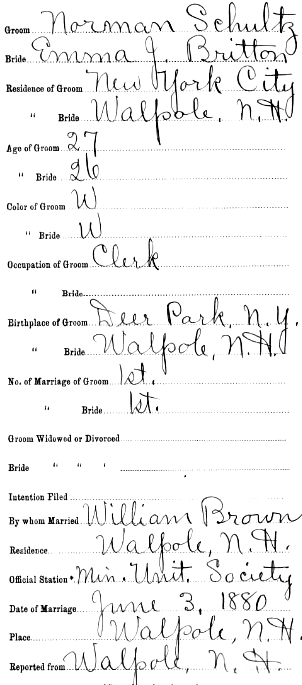 Groom Norman Schultz
Bride Emma J. Britton
Residence of Groom New York City
" Bride Walpole, N.H.
Age of Groom 27
" Bride 26
Color of Groom W
" Bride W
Occupation of Groom Clerk
" Bride
Birthplace of Groom Deer Park, N.Y.
" Bride Walpole, N.H.
No. of Marriage of Groom 1st.
" Bride 1st.
Groom Widowed or Divorced
Bride " " "
Intention Filed
By whom Married William Brown
Residence Walpole, N.H.
Official Station Min. Unit. Society
Date of Marriage June 3, 1880
Place Walpole, N.H.
Reported from Walpole, N.H.